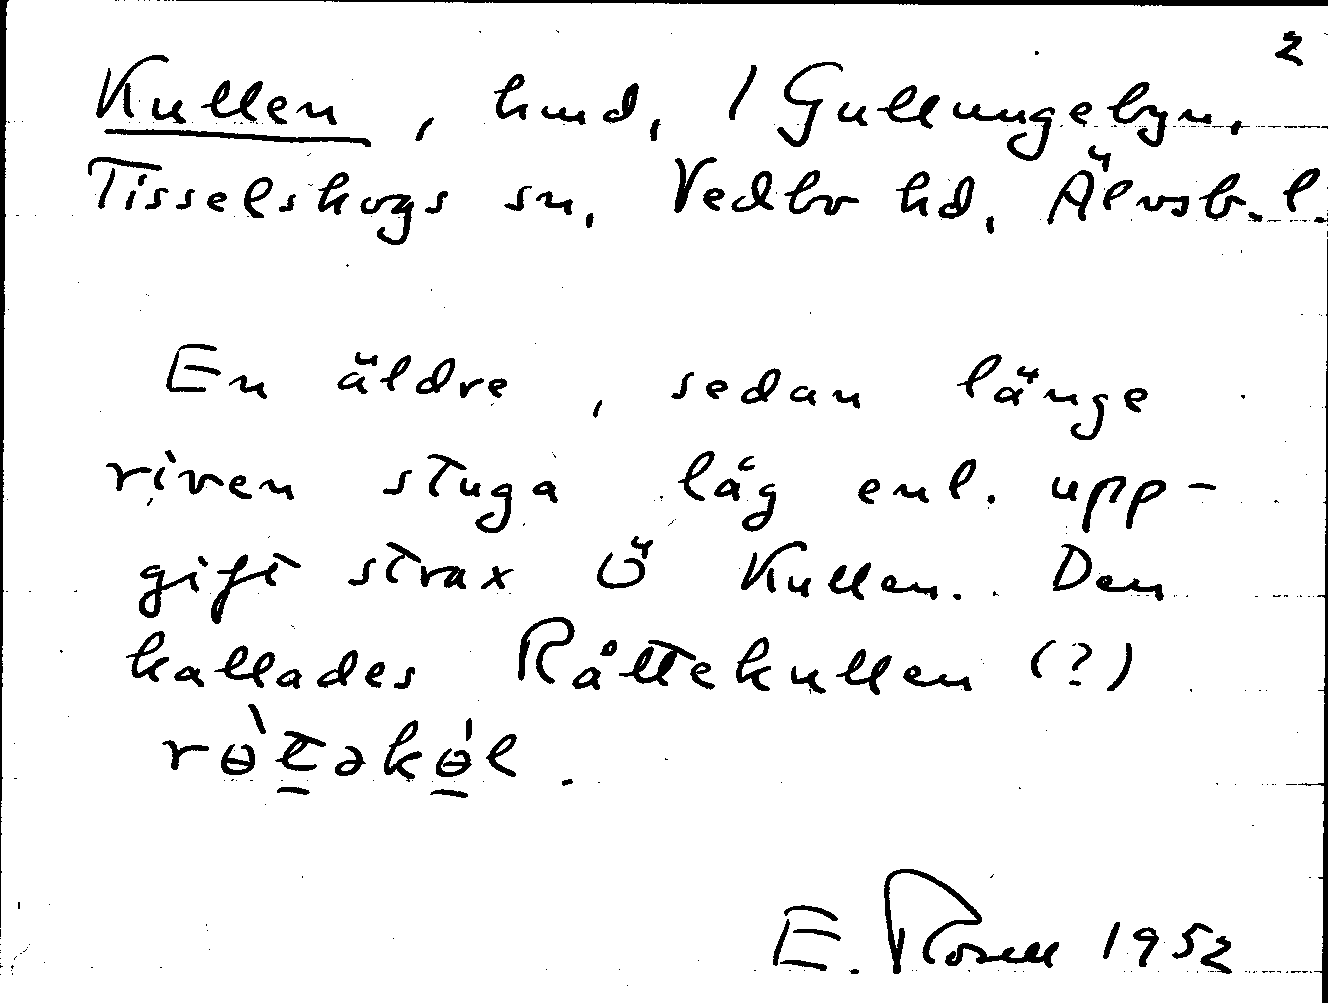 2
Kullen, hmd, 1 Gullungebyn,
Tisselskogs sn, Vedbo hd, Älvsb. l.
En äldre, sedan länge
riven stuga låg enl. upp-
gift strax Ö Kullen. Den
kallades Råttekullen (?)
rɵ̀t̲əkɵ̲́l.
E. Rosell 1952